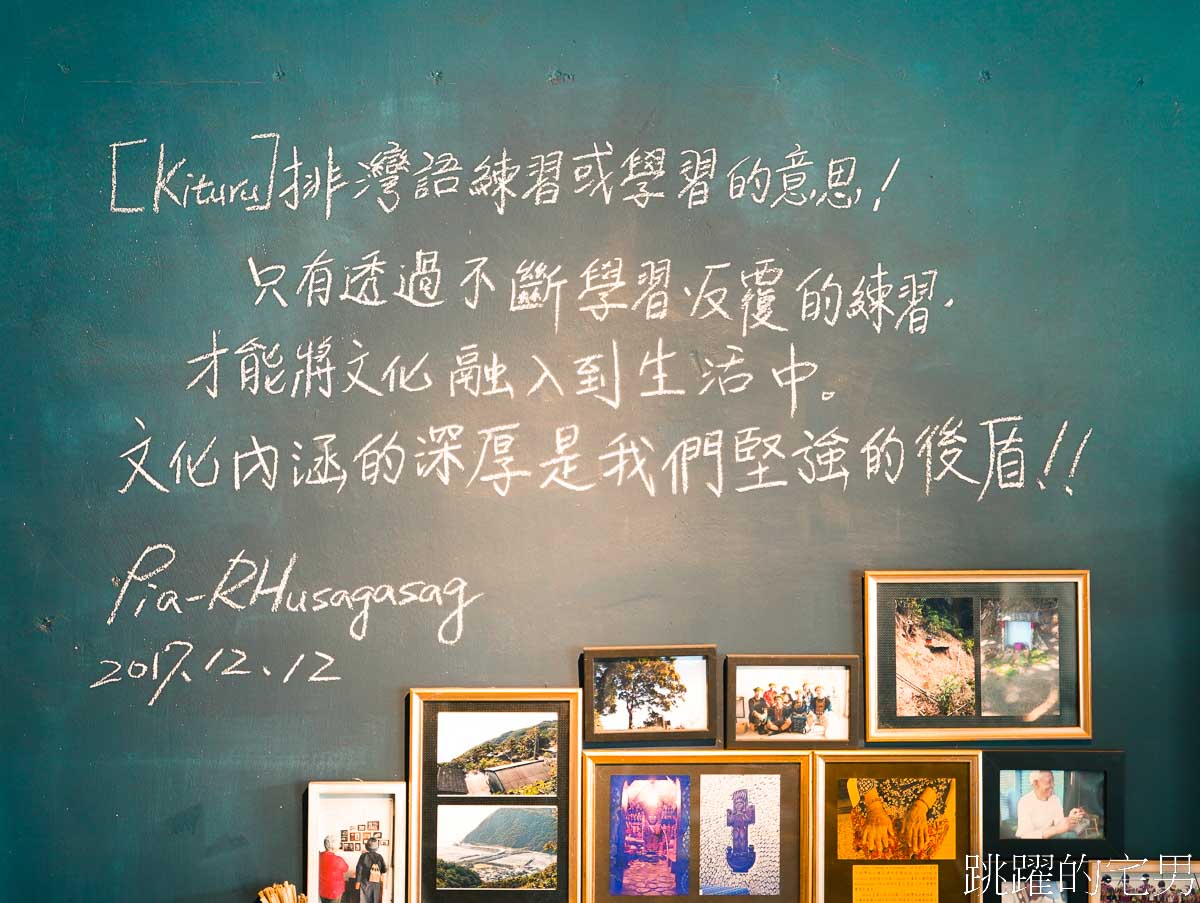 [Kituru]排灣語練習或學習的意思!
只有透過不斷學習反覆的練習,
才能將文化融入到生活中。
文化內涵的深厚是我們堅強的後盾!!
Pia-RHusagasag
2017.12.12
跳躍的宅男